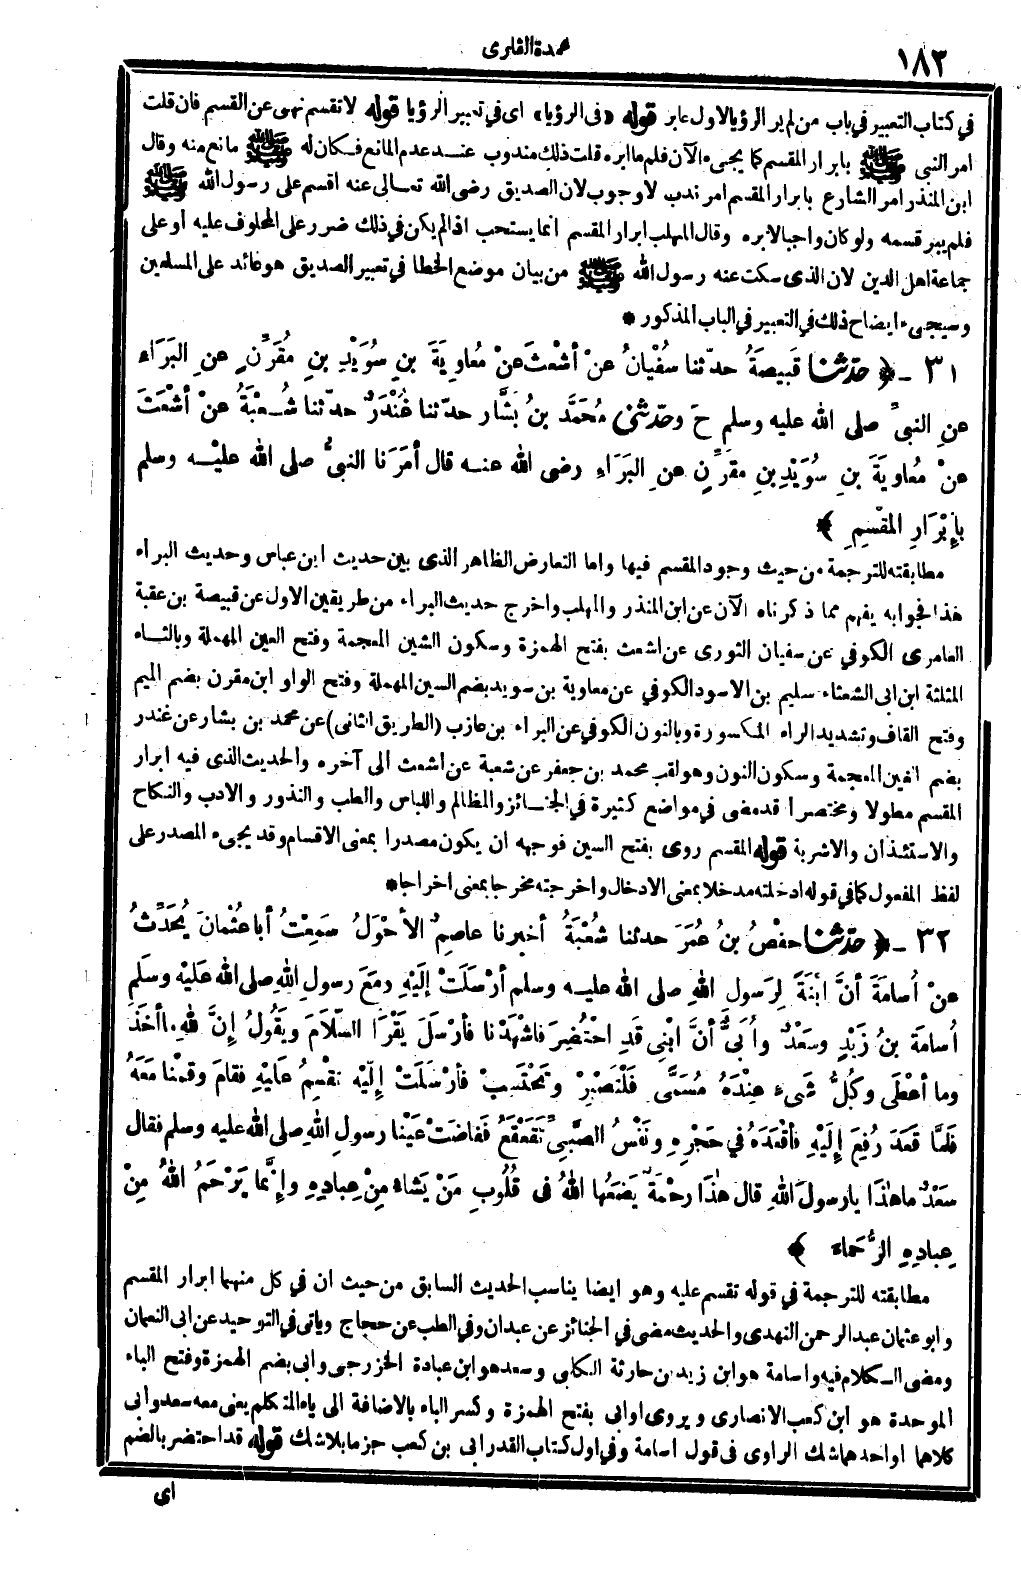 ١٨٣
عمدة القارى
في كتاب التعبير في باب من لم ير الرؤيا لاول عابر قوله «فى الرؤيا» اى في تعبير الرؤيا قوله لا تقسم نهى عن القسم فان قلت
امر النبى ﷺ بابرار المقسم كما يجىء الآن فلم ما ابره قلت ذلك مندوب عند عدم المانع فكان له ﷺ مانع منه وقال
ابن المنذر امر الشارع بابرار المقسم امر ندب لا وجوب لان الصديق رضى الله تعالى عنه اقسم على رسول الله ﷺ
فلم يبر قسمه ولو كان واجبا لابره وقال المهلب ابرار المقسم انما يستحب اذا لم يكن في ذلك ضرر على المحلوف عليه أو على
جماعة اهل الدين لان الذى سكت عنه رسول الله ﷺ من بيان موضع الخطا في تعبير الصديق هو عائد على المسلمين
وسيجىء ايضاح ذلك في التعبير في الباب المذكور *
٣١ - ﴿ حدّثنا قَبيصَةُ حدّثنا سُفْيانُ عنْ أشْعَثَ عنْ مُعاوِيَةَ بنِ سُوَيْدِ بنِ مُقَرِّنٍ عنِ البَرَاءِ
عنِ النبىِّ صلى الله عليه وسلم ح وحدّثنى مُحَمَّدُ بنُ بَشَّار حدّثنا غُنْدَرٌ حدّثنا شُعْبَةُ عنْ أشْعَثَ
عنْ مُعاوِيَةَ بنِ سُوَيْدِ بنِ مقَرِّنٍ عنِ البَرَاءِ رضى الله عنه قال أمَرَنا النبىُّ صلى الله عليْه وسلم
بإِبْرَارِ المقْسِمِ ﴾
مطابقته للترجمة من حيث وجود المقسم فيها واما التعارض الظاهر الذى بين حديث ابن عباس وحديث البراء
هذا فجوابه يفهم مما ذكرناه الآن عن ابن المنذر والمهلب واخرج حديث البراء من طريقين الاول عن قبيصة بن عقبة
العامرى الكوفي عن سفيان الثورى عن اشعث بفتح الهمزة وسكون الشين المعجمة وفتح العين المهملة وبالثاء
المثلثة ابن ابى الشعثاء سليم بن الاسود الكوفي عن معاوية بن سويد بضم السين المهملة وفتح الواو ابن مقرن بضم الميم
وفتح القاف وتشديد الراء المكسورة وبالنون الكوفي عن البراء بن عازب (الطريق الثانى) عن محمد بن بشار عن غندر
بضم الغين المعجمة وسكون النون وهو لقب محمد بن جعفر عن شعبة عن اشعث الى آخره والحديث الذى فيه ابرار
المقسم مطولا ومختصرا قد مضى في مواضع كثيرة في الجنائز والمظالم واللباس والطب والنذور والادب والنكاح
والاستئذان والاشربة قوله المقسم روى بفتح السين فوجهه ان يكون مصدرا بمعنى الاقسام وقد يجىء المصدر على
لفظ المفعول كما في قوله ادخلته مدخلا بمعنى الادخال واخرجته مخرجا بمعنى اخراجا*
٣٢ - ﴿ حدّثنا حفْصُ بنُ عُمَرَ حدثنا شُعْبَةُ أخبرنا عاصِمٌ الأحْوَلُ سَمِعْتُ أبا عُثْمانَ يُحَدِّثُ
عنْ أُسامَةَ أنَّ ابْنَةً لِرَسولِ اللهِ صلى الله عليه وسلم أرْسَلَتْ إلَيْهِ ومَعَ رسولِ اللهِ صلى الله عَليْه وسلَم
أُسامَة بنُ زَيْدٍ وسَعْدٌ وأُبَىٌّ أنَّ ابْنِى قَدِ احْتُضِرَ فاشْهَدْنا فأرْسَلَ يَقْرَا السَّلاَمَ ويَقُولُ إنَّ للهِ ما أخَذَ
وما أعْطَى وكُلُّ شَىءٍ عِنْدَهُ مُسَمًّى فَلْتَصْبِرْ وتَحْتَسِبْ فأرْسَلَتْ إلَيْهِ تقْسِمُ عَلَيْهِ فقامَ وقمْنا مَعَهُ
فَلَمَّا قَعَدَ رُفِعَ إلَيْهِ فأقْعَدَهُ في حَجْرِهِ ونَفْسُ الصَّبِىِّ تَقَعْقَعُ فَفاضَتْ عَيْنا رسولِ اللهِ صلى الله عليه وسلم فقال
سَعْدٌ ما هٰذَا يا رسولَ اللهِ قال هٰذا رحْمَةٌ يَضَعُها اللهُ فى قُلُوبِ مَنْ يَشاءُ مِنْ عِبادِهِ وإنَّما يَرْحَمُ اللهُ مِنْ
عِبادِهِ الرُّحَماءَ ﴾
مطابقته للترجمة في قوله تقسم عليه وهو ايضا يناسب الحديث السابق من حيث ان في كل منهما ابرار المقسم
وابو عثمان عبد الرحمن النهدى والحديث مضى في الجنائز عن عبدان وفي الطب عن حجاج وياتى في التوحيد عن ابى النعمان
ومضى الكلام فيه واسامة هو ابن زيد بن حارثة الكلبى وسعد هو ابن عبادة الخزرجى وابى بضم الهمزة وفتح الباء
الموحدة هو ابن كعب الانصارى ويروى او ابى بفتح الهمزة وكسر الباء بالاضافة الى ياء المتكلم يعنى معه سعد وابى
كلاهما او احدهما شك الراوى فى قول اسامة وفي اول كتاب القدر ابى بن كعب جزما بلا شك قوله قد احتضر بالضم
اى